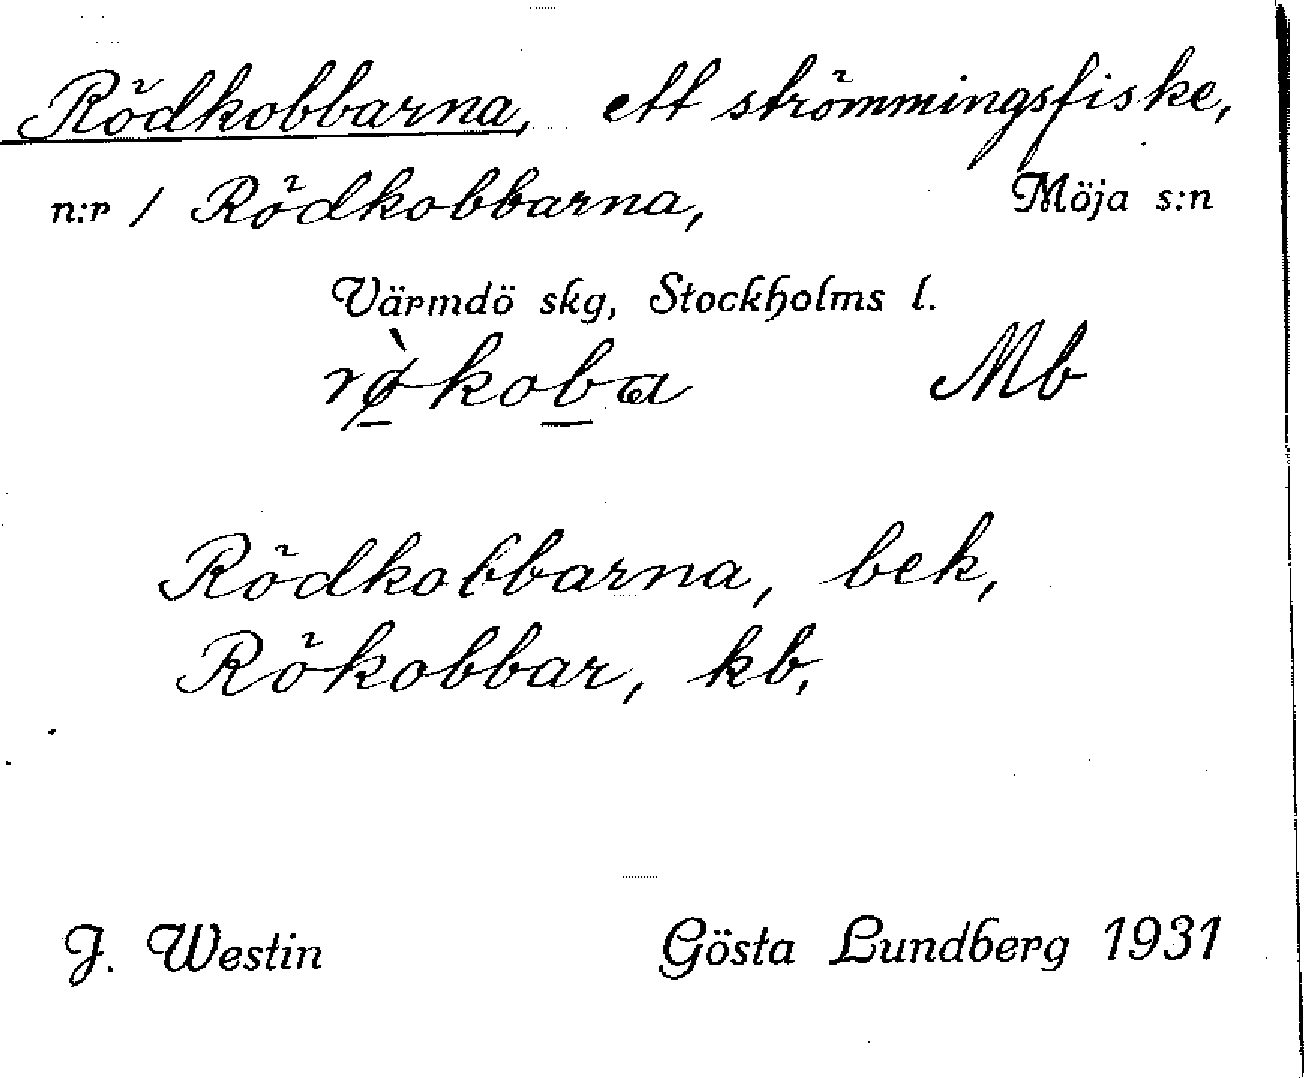 Rödkobbarna, ett strömmingsfiske,
n:r 1 Rödkobbarna, Möja s:n
Värmdö skg, Stockholms l.
rø̀koba Mb
Rödkobbarna, bek,
Rökobbar, kb,
J. Westin Gösta Lundberg 1931